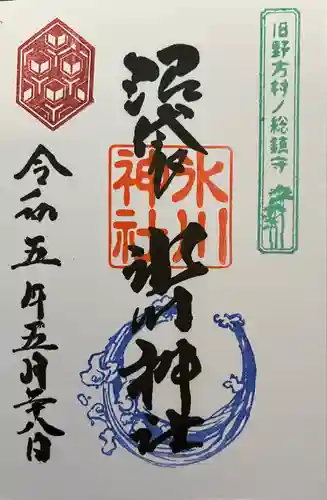 旧野方村ノ総鎮守
沼袋 氷川神社
氷川神社
令和五年五月二十八日